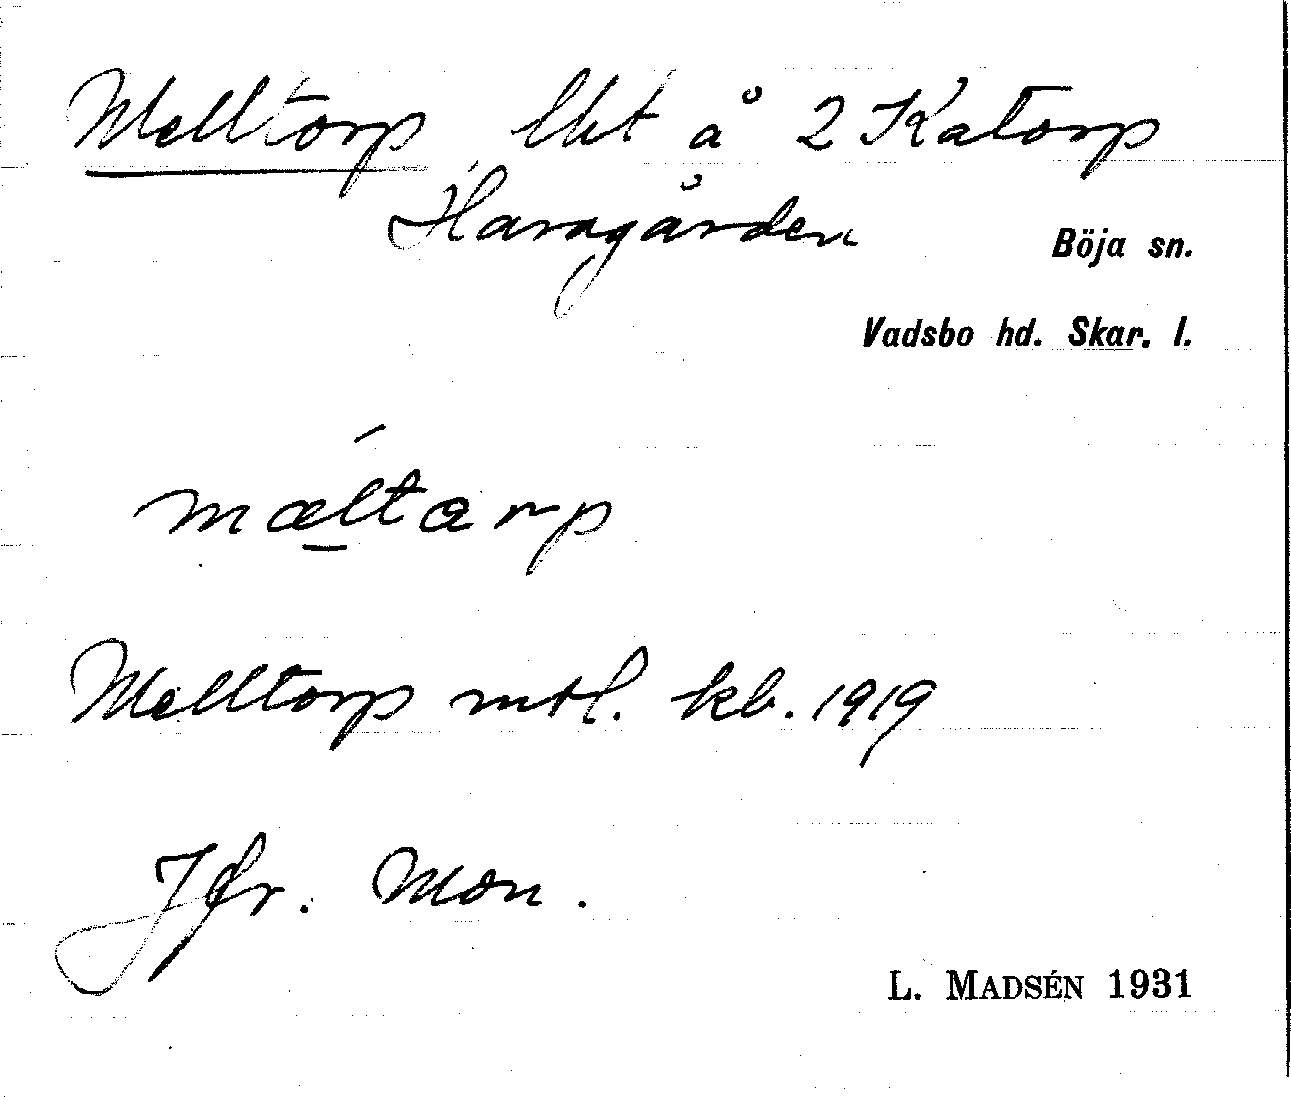 Melltorp, lht å 2 Katorp
Haragården
Böja sn.
Vadsbo hd. Skar. l.
mæ̱ltarp
Melltorp mtl. kb. 1919
Jfr. Mon.
L. MADSÉN 1931